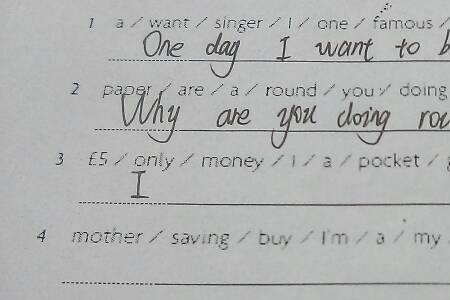 1 a / want / singer / I / one / famous /
One day I want to b
2 paper / are / a / round / you / doing
Why are you doing rou
3 £5 / only / money / I / a / pocket /
I
4 mother / saving / buy / I'm / a / my